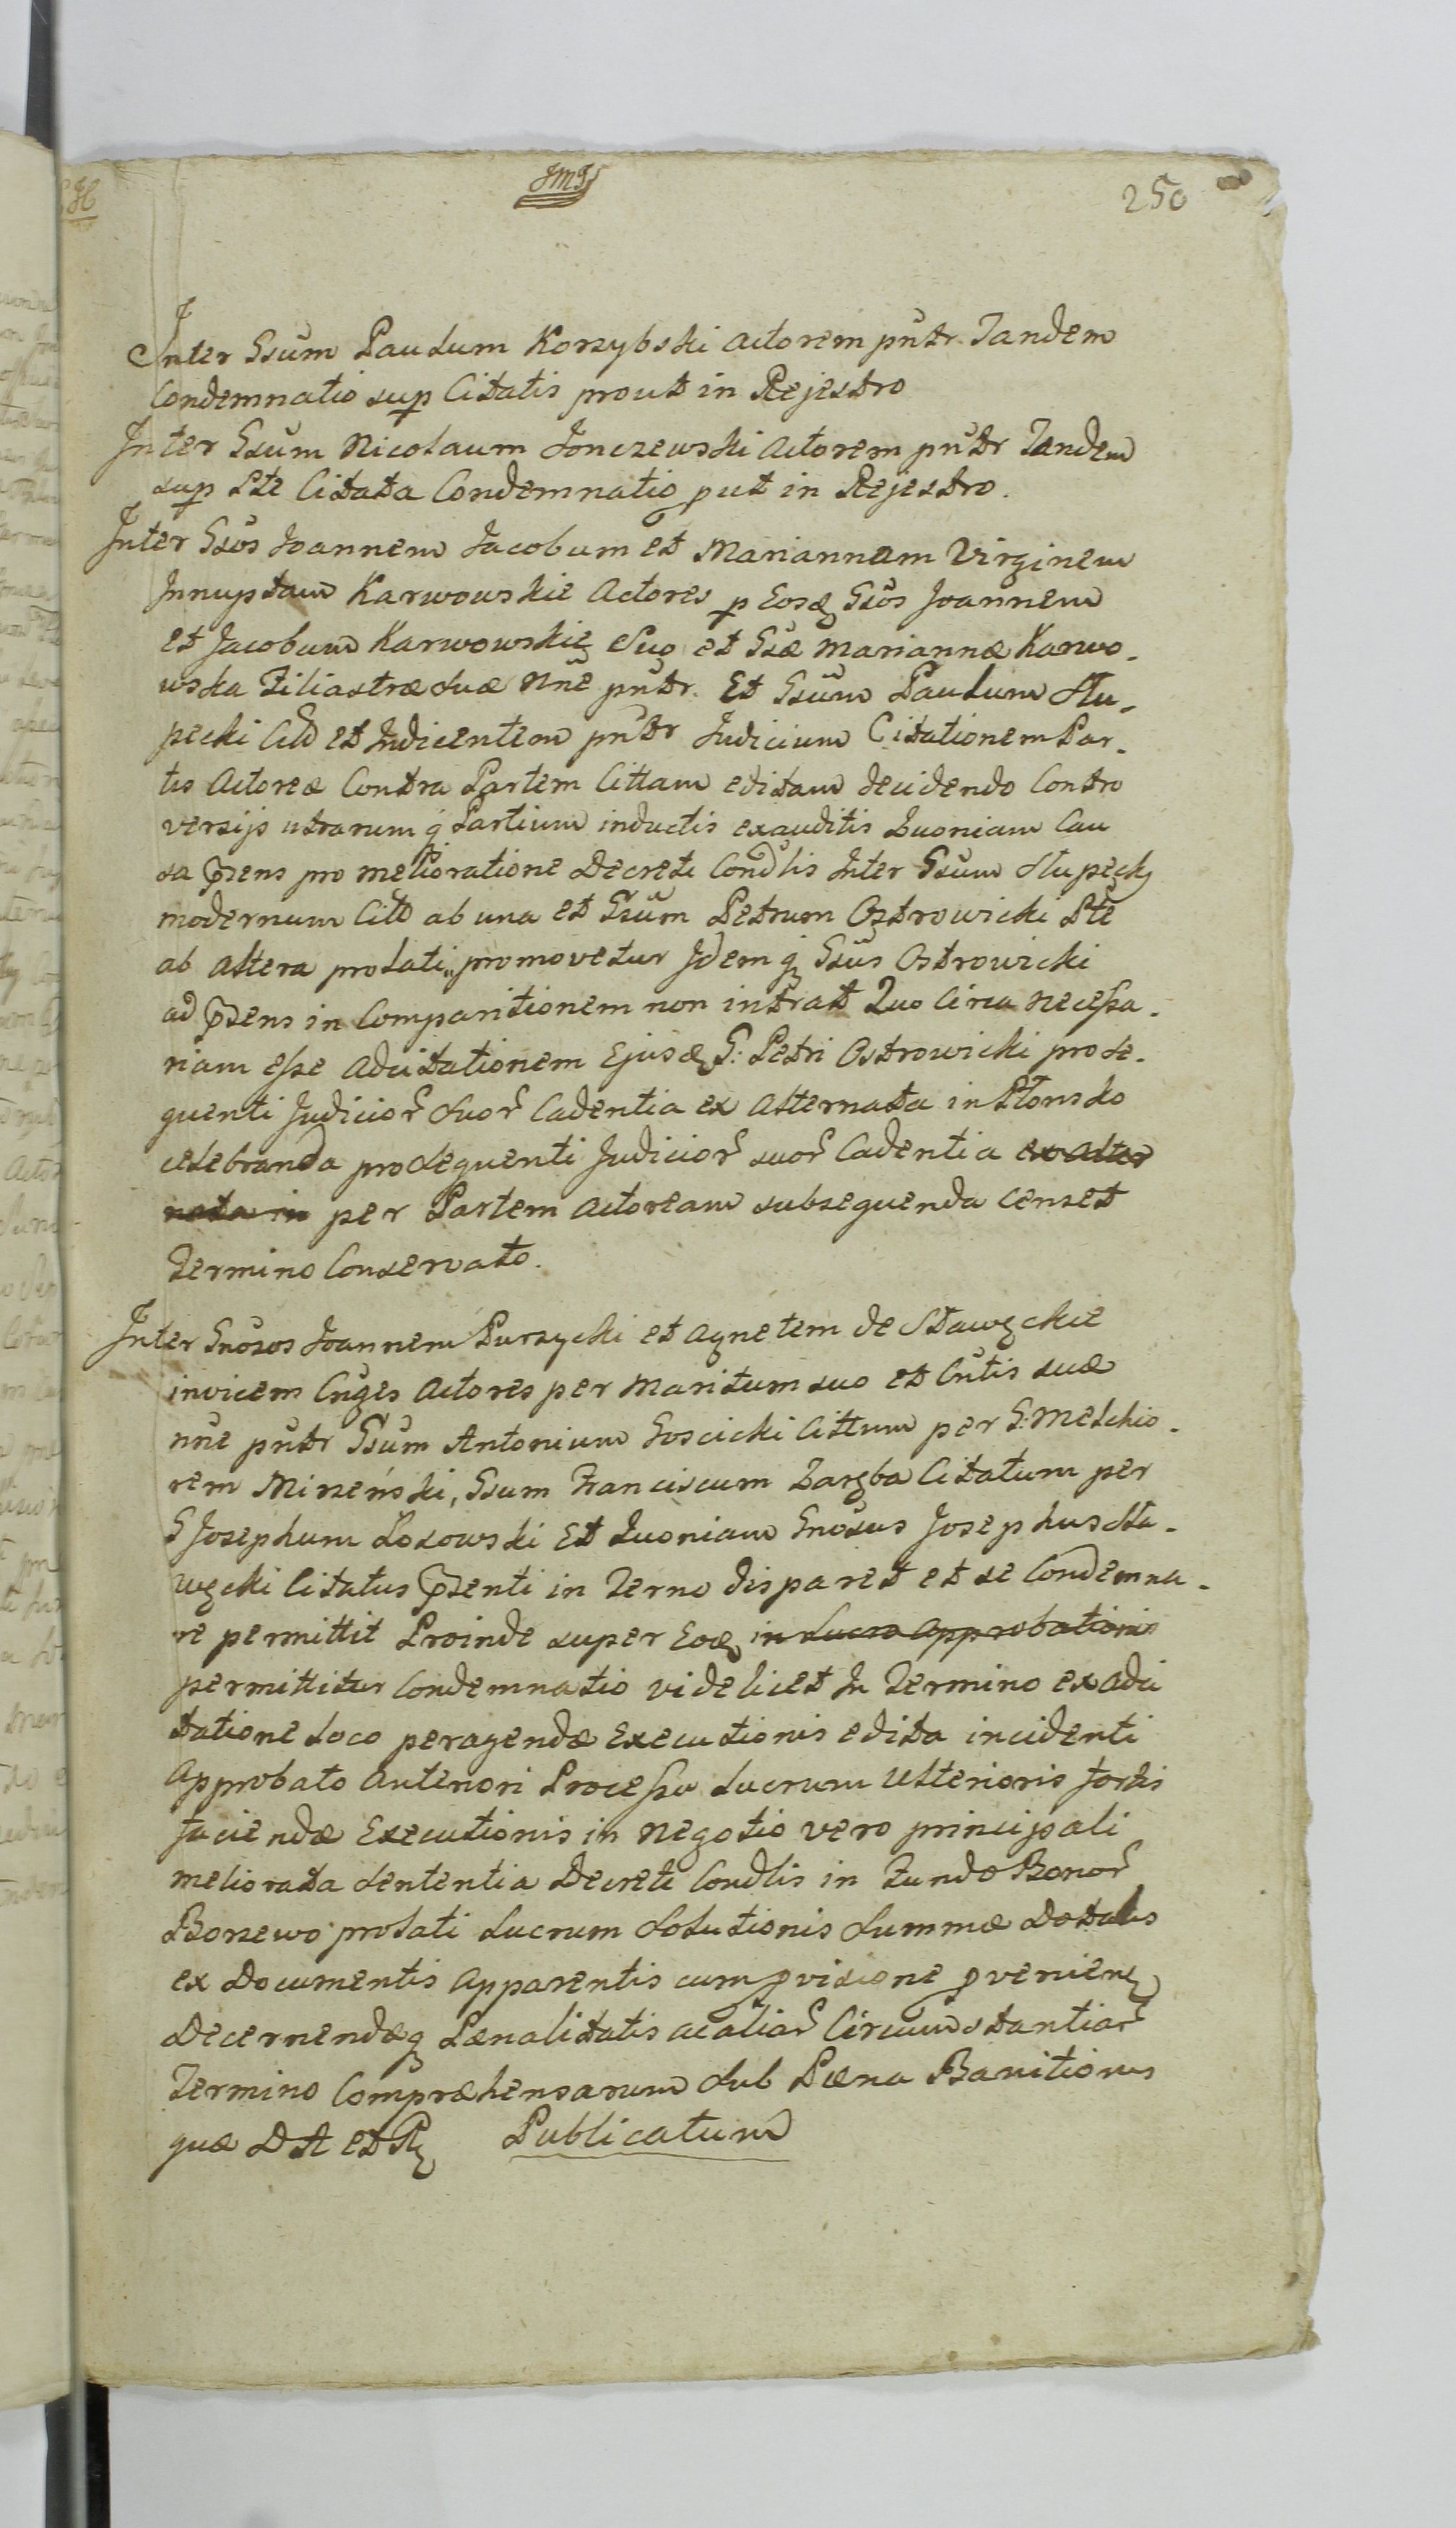 JMJ
250
Inter Gsum Paulum Korzybski Actorem pntr. Tandem
Condemnatio sup Citatis prout in Rejestro
Inter Gsum Nicolaum Jonczewski Actorem pntr Tandem
sup Pte Citata Condemnatio put in Rejestro.
Inter Gsos Joannem Jacobum et Mariannam Virginem
Innuptam Karwowskie Actores p Eosq Gsos Joannem
et Jacobum Karwowskie Suo et Gsæ Mariannæ Karwo-
wska Filiastræ Suæ nne pntr. Et Gsum Paulum Stu-
pecki Citt et Indicentem pntr Judicium Citationem Par-
tis Actoreæ Contra Partem Cittam editam decidendo Contro
versijs utrarumq Partium inductis exauditis Quoniam Cau
sa psens pro melioratione Decreti Condlis Inter Gsum Stupecki
modernum Citt ab una et Gsum Petrum Ostrowicki Pte
ab altera prolati promovetur Idemq Gsus Ostrowicki
ad psens in Comparitionem non intrat Quo Circa necessa-
riam esse Adcitationem Ejusd G: Petri Ostrowicki pro se-
quenti Judicior Suor Cadentia ex Alternata in Płonsko
celebranda pro sequenti Judicior suor Cadentia ex Alter
nata in per Partem Actoream subsequenda Censet
Termino Conservato.
Inter Gnosos Joannem Purzycki et Agnetem de Stawęckie
invicem Cnges Actores per Maritum suo et Cntis suæ
nne pntr Gsum Antonium Goscicki Cittum per G: Melchio-
rem Mirzeński, Gsum Franciscum Zaręba Citatum per
G Josephum Łosowski Et Quoniam Gnosus Josephus Sta-
węcki Citatus psenti in Terno disparet et se Condemna-
re permittit Proinde super Eod in Lucro Approbationis
permittitur Condemnatio videlicet In Termino ex Adci
tatione Loco peragendæ Executionis edita incidenti
Approbato Anteriori Processu Lucrum Ulterioris fortis
faciendæ Executionis in Negotio vero principali
meliorata Sententia Decreti Condlis in Fundo Bonor
Borzewo prolati Lucrum Solutionis Summæ Dotalis
ex Documentis Apparentis cum pvisione pvenien
Decernendæq Pænalitatis ac aliar Circumstantiar
Termino Compræhensarum Sub Pæna Banitionis
quæ DA et P Publicatum